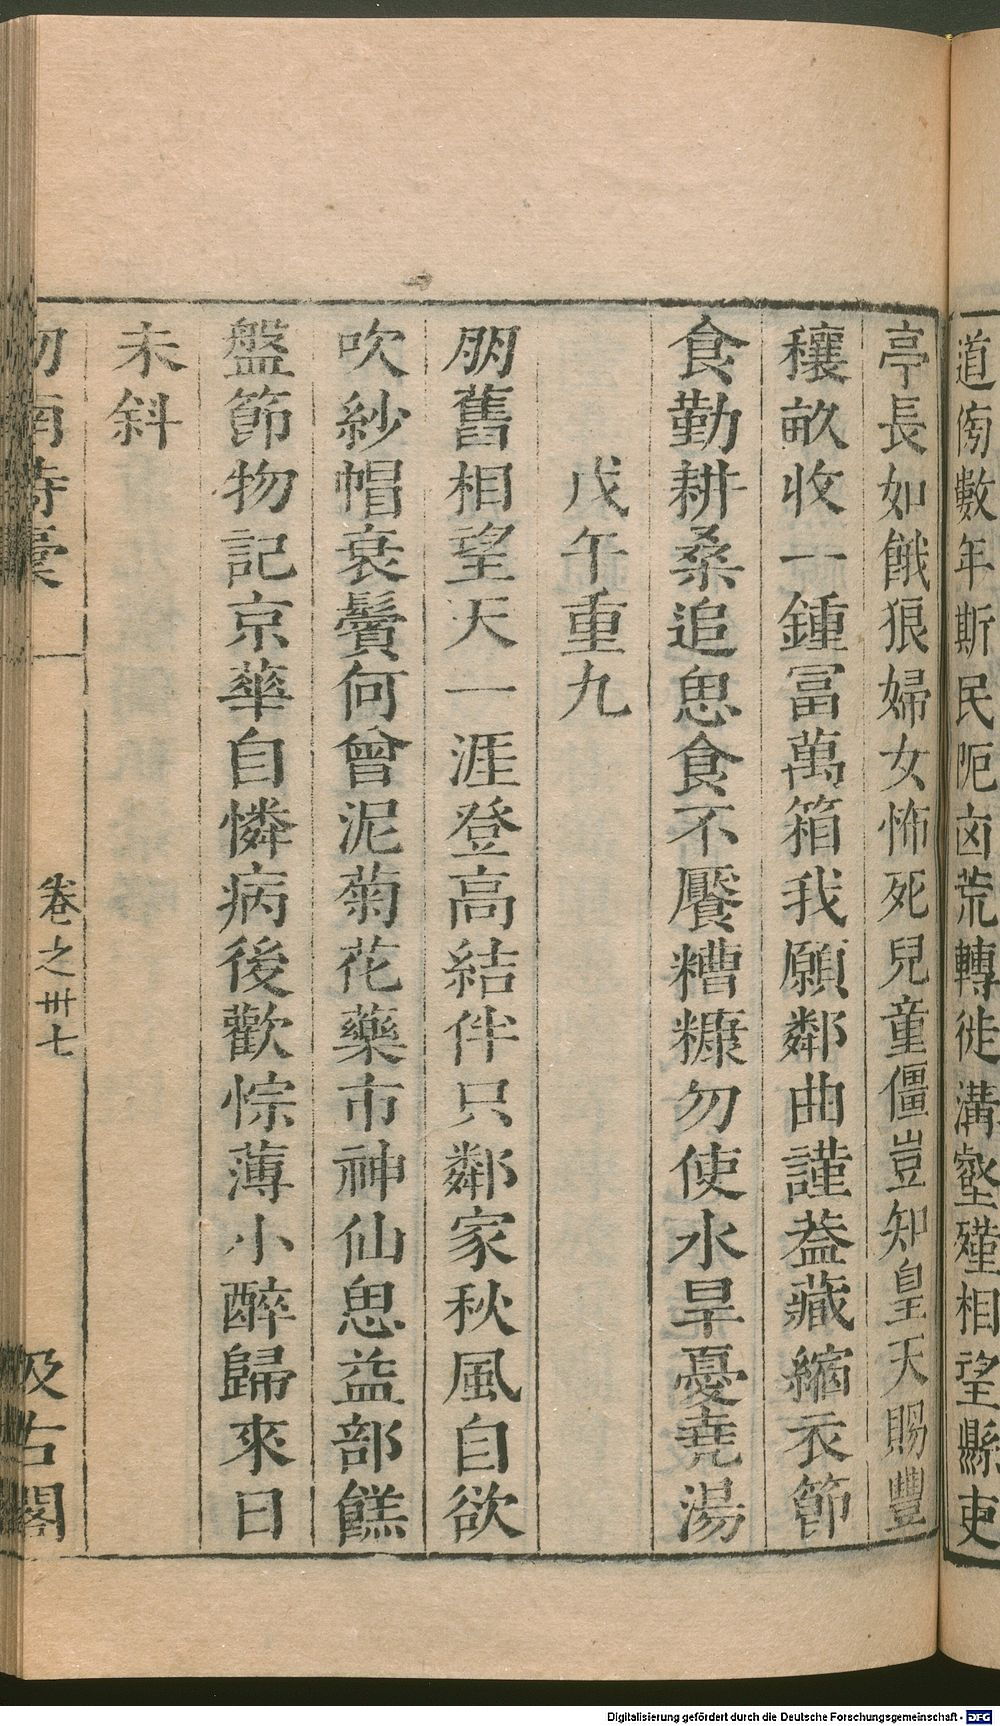 道傍數年斯民阨卤荒轉徙溝壑殣相望縣吏
亭長如餓狼婦女怖死兒童僵豈知皇天賜豐
穰畝收一鍾冨萬箱我願鄰曲謹葢藏縮衣節
食勤耕桑追思食不饜糟糠勿使水旱憂堯湯
戊午重九
朋舊相望天一涯登高結伴只鄰家秋風自欲
吹紗帽衰鬢何曾泥菊花藥市神仙思益部餻
盤節物記京華自憐病後歡悰薄小醉歸來日
未斜
劒南詩稾
卷之卅七
汲古閣
Digitalisierung gefördert durch die Deutsche Forschungsgemeinschaft - DFG